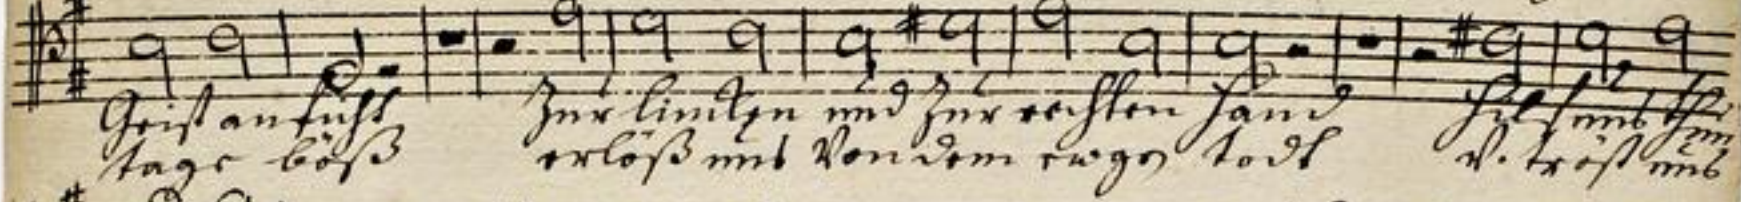 Geist anficht Zur lincken und Zur rechten Hand hilf uns
tage böß erlöß uns Von dem ewgen todt v. tröst uns